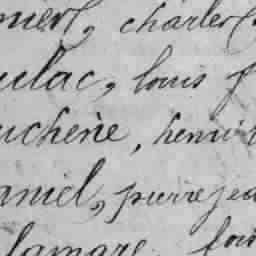 charles
ulac, louis
ucherie, henri
aniel, pierre jea
lamare